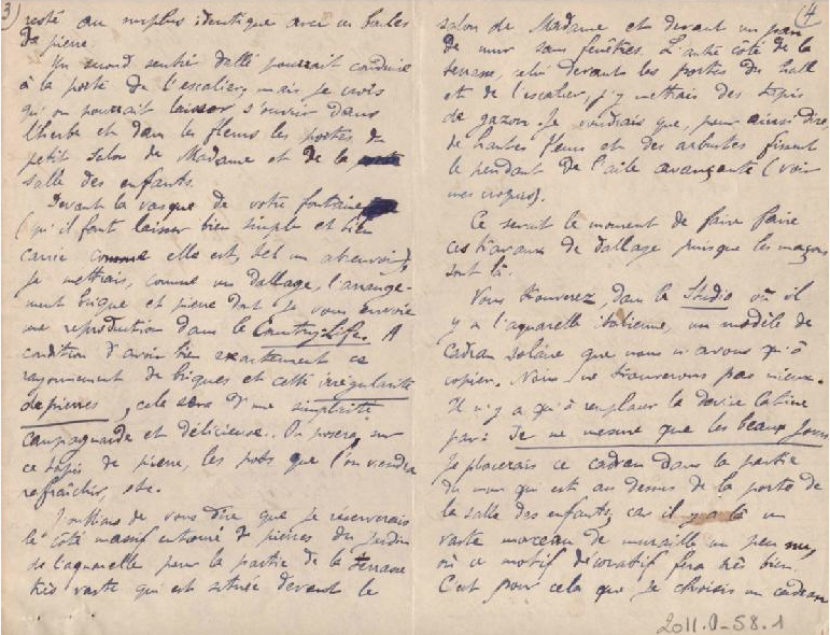 3)
resté au surplus identique avec ces bandes
de pierre.
Un second sentier dallé pourrait conduire
à la porte de l'escalier, mais je crois
qu'on pourrait laisser s'ouvrir dans
l'herbe et dans les fleurs les portes du
petit salon de Madame et de la
salle des enfants.
Devant la vasque de votre fontaine
(qu'il faut laisser bien simple et bien
carrée comme elle est, tel un abreuvoir)
je mettrais, comme un dallage, l'arrange-
ment brique et pierre dont je vous envoie
une reproduction dans le Country-Life. A
condition d'avoir bien exactement ce
rayonnement de briques et cette irrégularité
de pierres, cela sera d'une simplicité
campagnarde et délicieuse.. On posera, sur
ce tapis de pierre, les pots que l'on viendra
rafraîchir, etc.
J'oubliais de vous dire que je réserverais
le côté massif entouré de pierres du jardin
de l'aquarelle pour la partie de la terrasse
très vaste qui est située devant le
(4
salon de Madame et devant un pan
de mur sans fenêtres. L'autre côté de la
terrasse, celui devant les portes du hall
et de l'escalier, j'y mettrais des tapis
de gazon. Je voudrais que, pour ainsi dire,
de hautes fleurs et des arbustes fissent
le pendant de l'aile avançante (voir
mes croquis).
Ce serait le moment de faire faire
ces travaux de dallage puisque les maçons
sont là.
Vous trouverez, dans le Studio où il
y a l'aquarelle italienne, un modèle de
cadran solaire que nous n'avons qu'à
copier. Nous ne trouverons pas mieux.
Il n'y a qu'à remplacer la devise latine
par: Je ne mesure que les beaux jours
Je placerais ce cadran dans la partie
du mur qui est au dessus de la porte de
la salle des enfants, car il y a là un
vaste morceau de muraille un peu nu,
où ce motif décoratif fera très bien.
C'est pour cela que je choisis un cadran
2011.0-58.1